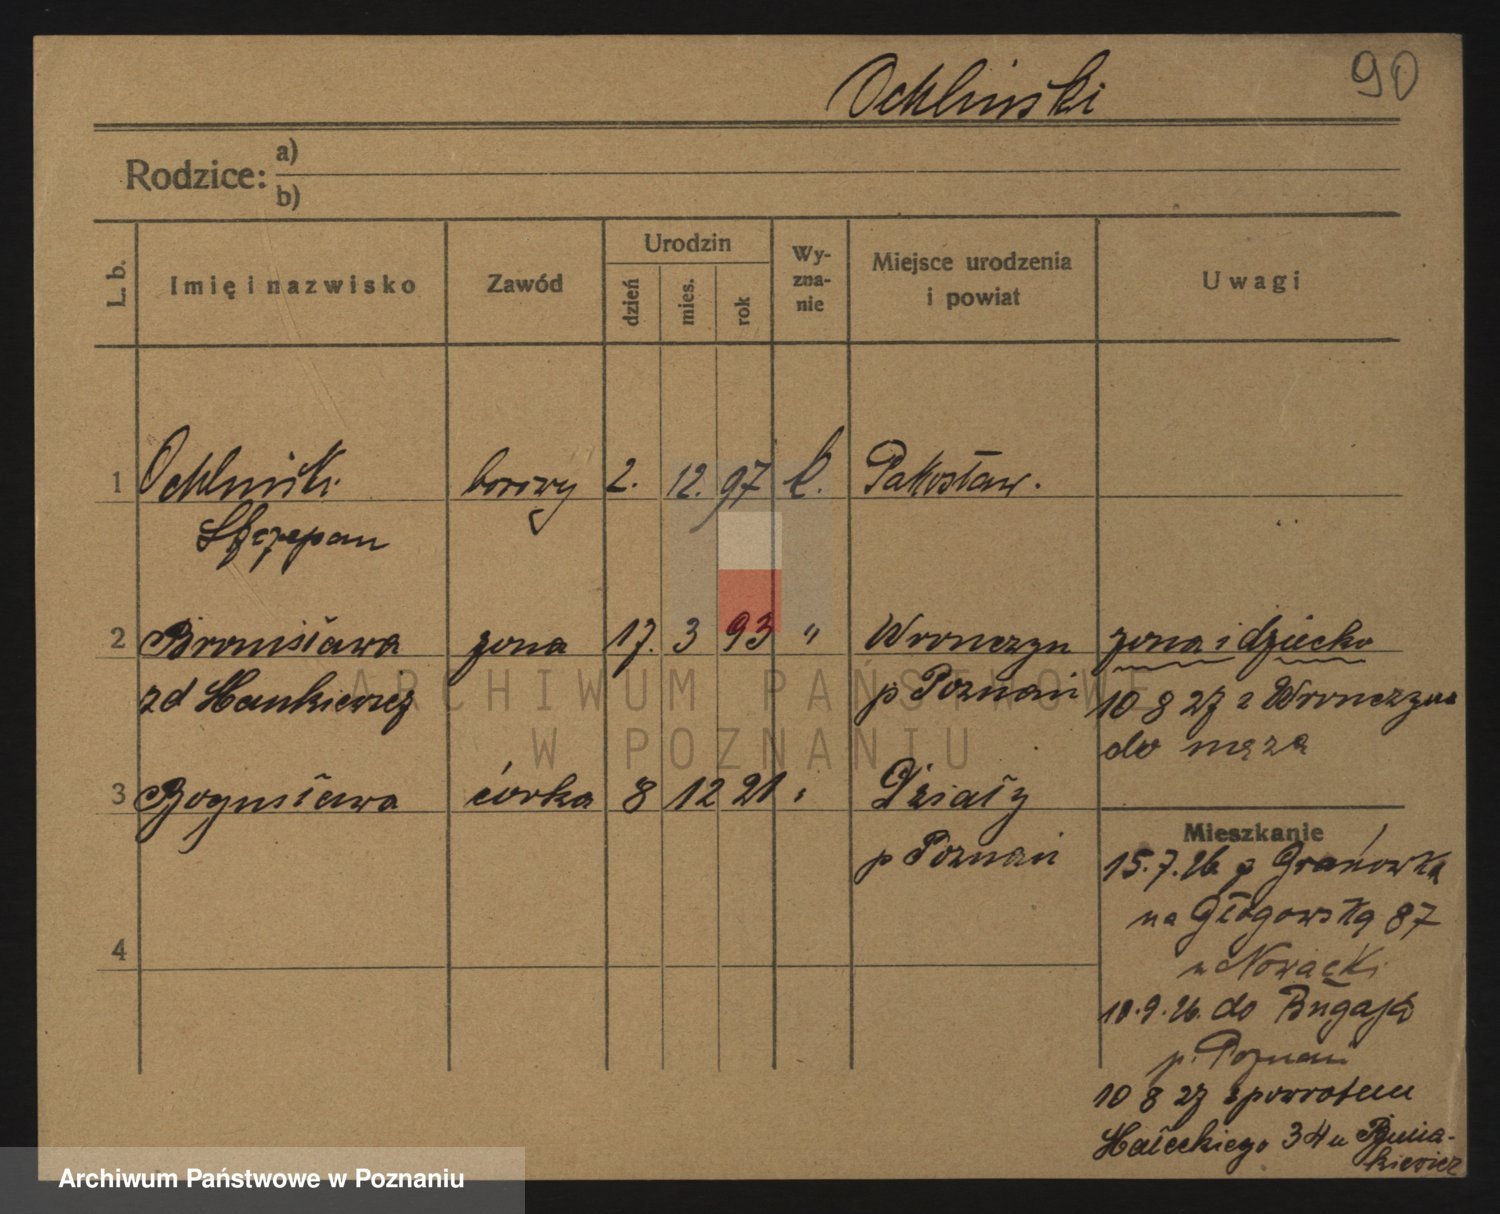 90
Ochliński
Rodzice: a)
b)
L. b.
Imię i nazwisko
Zawód
Urodzin
dzień
mies.
rok
Wy-
zna-
nie
Miejsce urodzenia
i powiat
Uwagi
1 Ochliński borowy 2. 12. 97 k. Pakosław.
Szczepan
2 Bronisława żona 17. 3 93 " Wronczyn żona i dziecko
zd Hankiewicz p Poznań 10 8 27 z Wronczyna
do męża
3 Bogusława córka 8 12 21 " Działy
p Poznań
Mieszkanie
15.7.26 z Granówka
na Głogowską 87
u Nowacki
10.9.26. do Bugaja
p. Poznań
4
10 8 27 spowrotem
Hałeckiego 34 u
ARCHIWUM PAŃSTWOWE
W POZNANIU
Archiwum Państwowe w Poznaniu